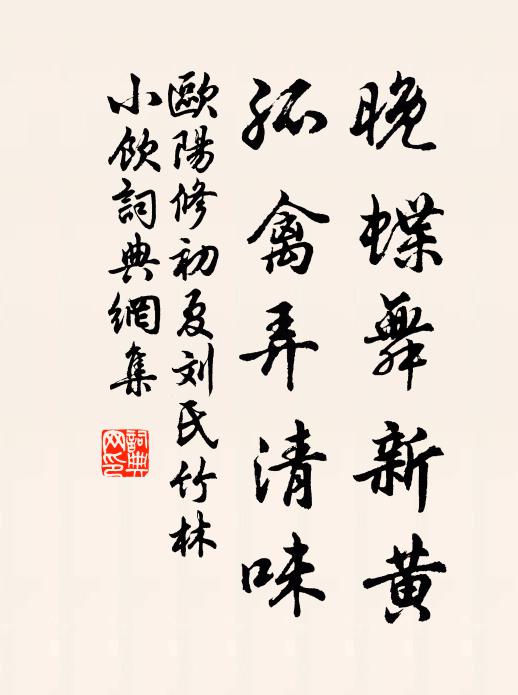 晚蝶舞新黄
孤禽弄清味
歐陽修初夏刘氏竹林
小飲詞典網集
詞典
网印